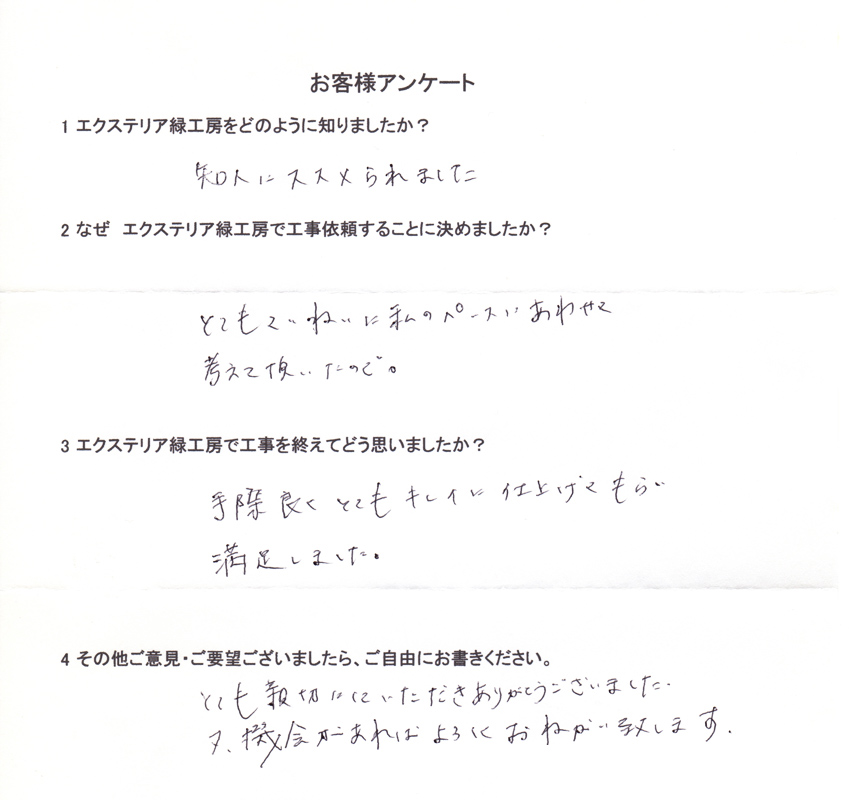 お客様アンケート
1 エクステリア緑工房をどのように知りましたか？
知人にススメられました
2 なぜ　エクステリア緑工房で工事依頼することに決めましたか？
とてもていねいに私のペースにあわせて
考えて頂いたので。
3 エクステリア緑工房で工事を終えてどう思いましたか？
手際良くとてもキレイに仕上げてもらい
満足しました。
4 その他ご意見・ご要望ございましたら、ご自由にお書きください。
とても親切にしていただきありがとうございました.
又、機会があればよろしくおねがい致します.